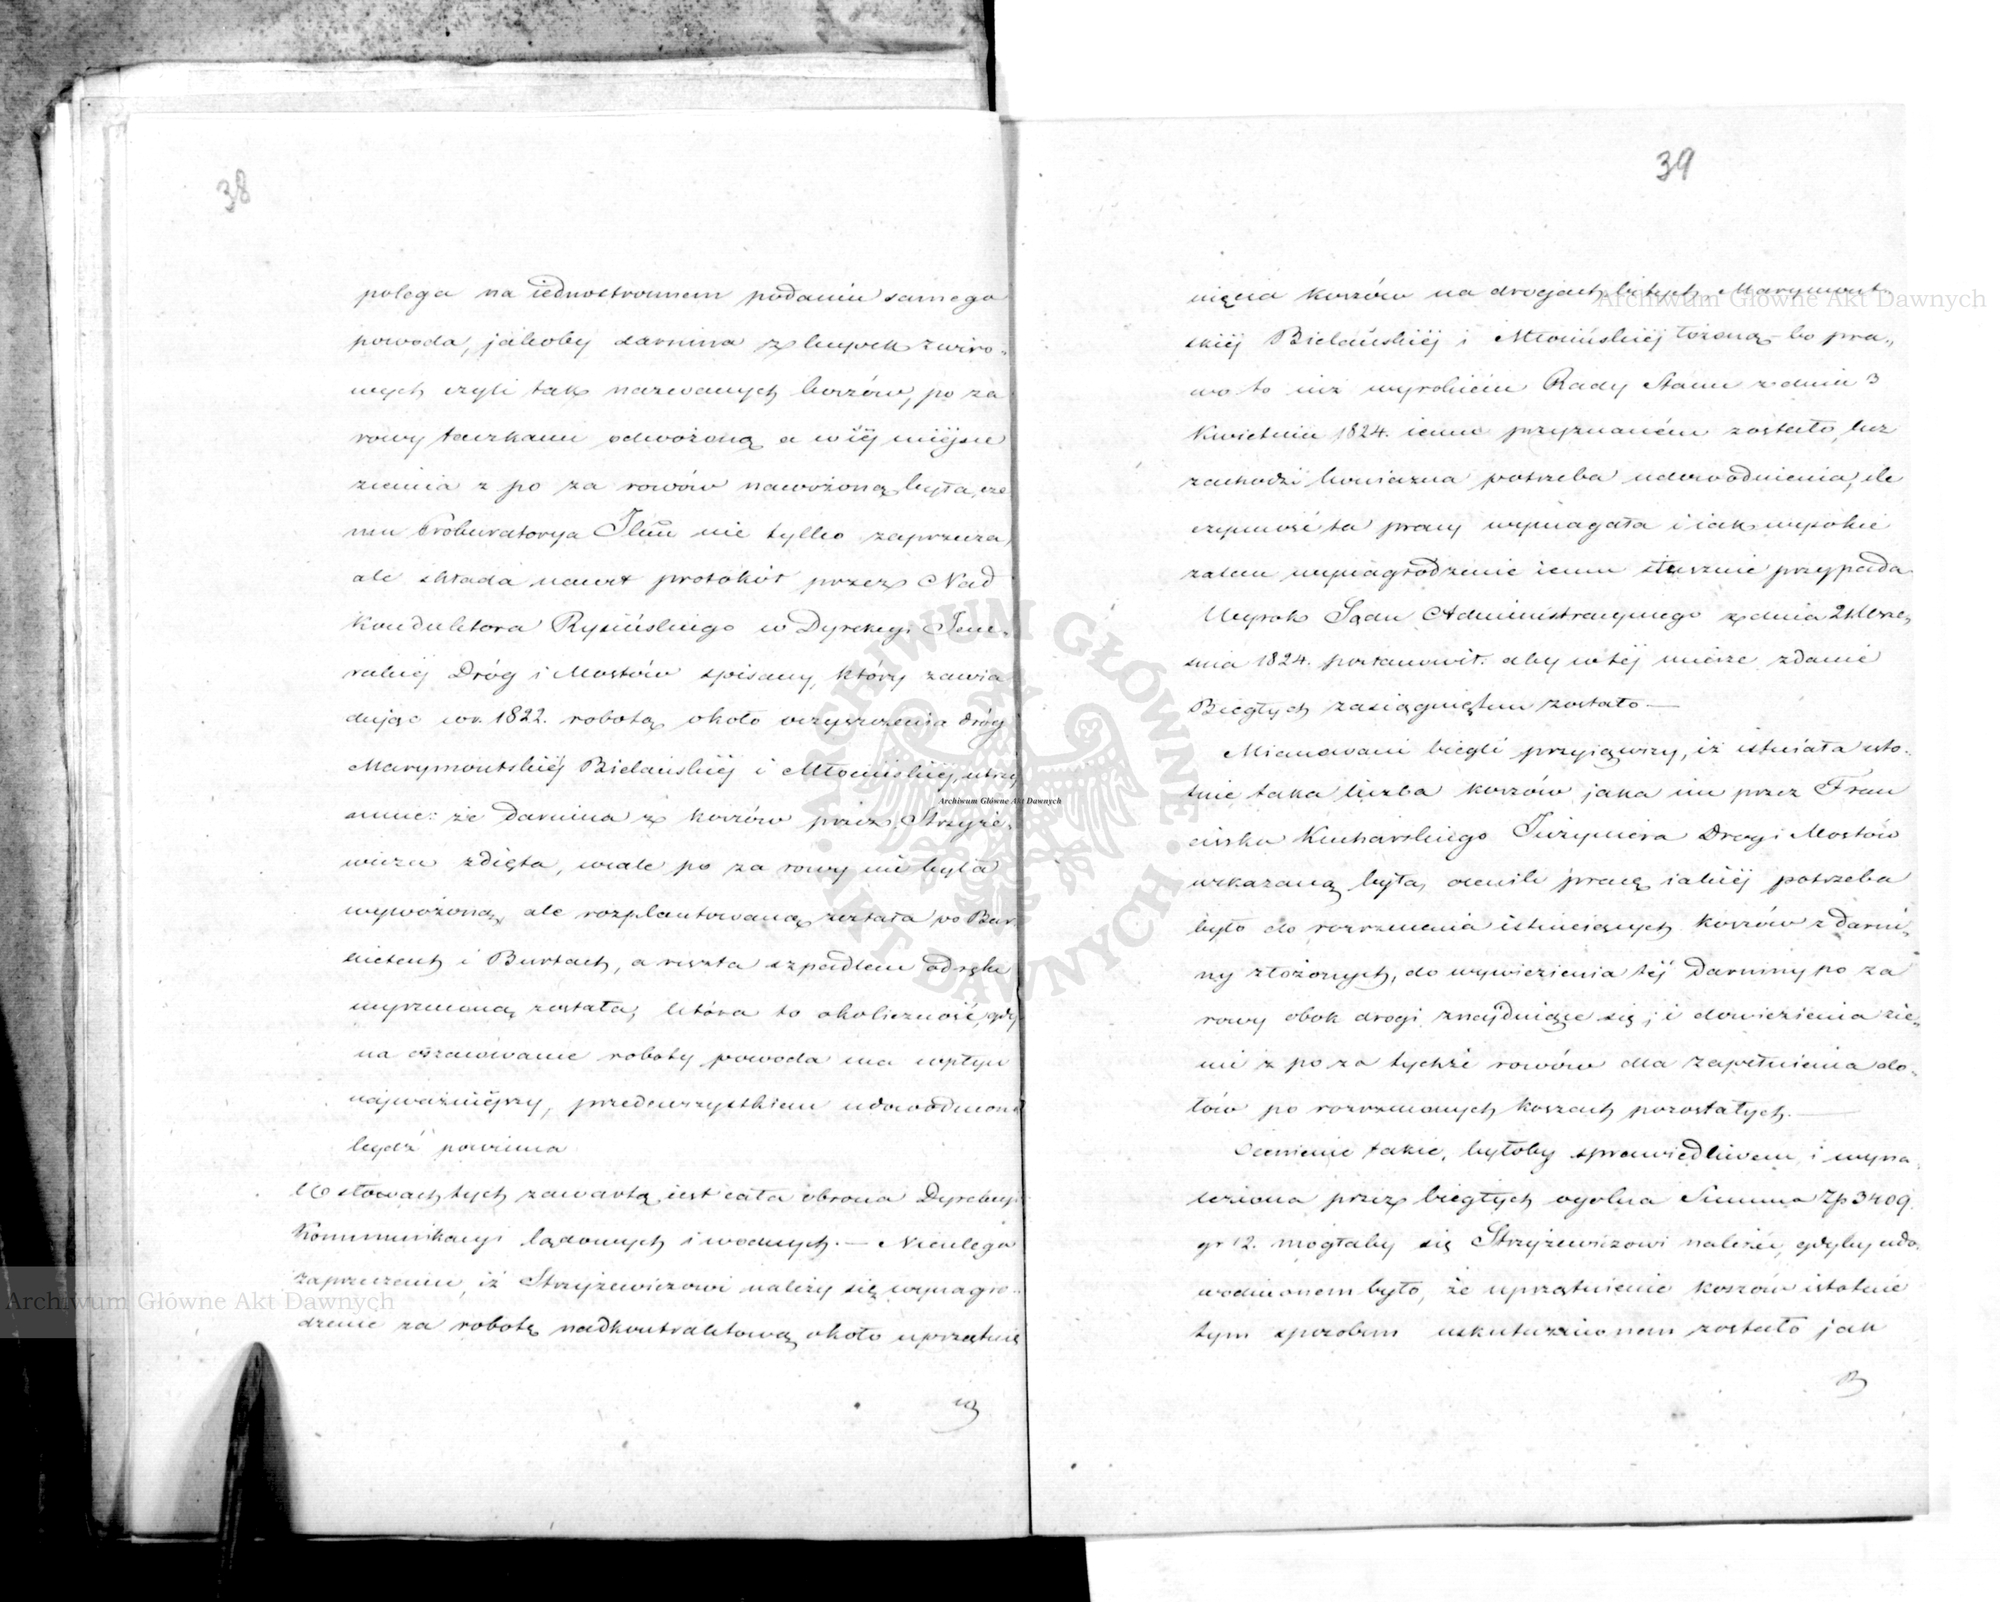 38
polega na iednostronnem podaniu samego
powoda, jakoby darnina z kupek zwiro-
wych czyli tak nazwanych koszów, po za
rowy taczkami odwożoną a w iéj miejsce
ziemia z po za rowów nawożoną była, cze
mu Prokuratorya Jlna nie tylko zaprzecza,
ale składa nawet protokół przez Nad
Konduktora Rysińskiego w Dyrekcyi Jene-
ralnéj Dróg i Mostów spisany, który zawia
dując w r. 1822. robotą około oczyszczenia dróg
Marymontskiéj Bielańskiéj i Młocińskiéj, utrzy
muie: że darnina z koszów przez Strzyże-
wicza zdięta, wcale po za rowy nie była
wywożoną, ale rozplantowaną została po Ban
kietach i Burtach, a reszta szpadlem od ręki
wyrzuconą została; która to okoliczność, gdy
na oszacowanie roboty powoda ma wpływ
najważniéjszy, przedewszystkiem udowodnioną
bydź powinna
W słowach tych zawartą iest cała obrona Dyrekcyi
Kommunikacyi lądowych i wodnych. — Nieulega
zaprzeczeniu, iż Strzyżewiczowi należy się wynagro-
dzenie za robotę nadkontraktową około uprzątnię
39
nięcia koszów na drogach bitych Marymont-
skiéj Bielańskiéj i Młocińskiéj łożoną — bo pra-
wo to iuż wyrokiem Rady Stanu z dnia 3
Kwietnia 1824. iemu przyznaném zostało, lecz
zachodzi konieczna potrzeba udowodnienia, ile
czynność ta pracy wymagała i iak wysokie
zatem wynagrodzenie iemu słusznie przypada
Wyrok Sądu Administracyjnego z dnia 21 Wrze-
śnia 1824. postanowił: aby w téj mierze zdanie
Biegłych zasiągniętem zostało —
Mianowani biegli przyiąwszy, iż istniała isto-
tnie taka liczba koszów jaka im przez Fran
ciszka Kucharskiego Inżyniera Dróg i Mostów
wskazaną była, ocenili pracę iakiéj potrzeba
było do rozrzucenia istnieiących koszów z darni-
ny złożonych, do wywiezienia téj darniny po za
rowy obok drogi znajduiące się, i dowiezienia zie-
mi z po za tychże rowów dla zapełnienia do-
łów po rozrzuconych koszach pozostałych. —
Ocenienie takie, byłoby sprawiedliwem, i wyna
leziona przez biegłych ogólna Summa Zp 3409.
gr 12. mogłaby się Strzyżewiczowi należeć, gdyby udo-
wodnionem było, że uprzątnienie koszów istotnie
tym sposobem uskutecznionem zostało jak
Archiwum Główne Akt Dawnych
Archiwum Główne Akt Dawnych
Archiwum Główne Akt Dawnych
ARCHIWUM GŁÓWNE
AKT DAWNYCH